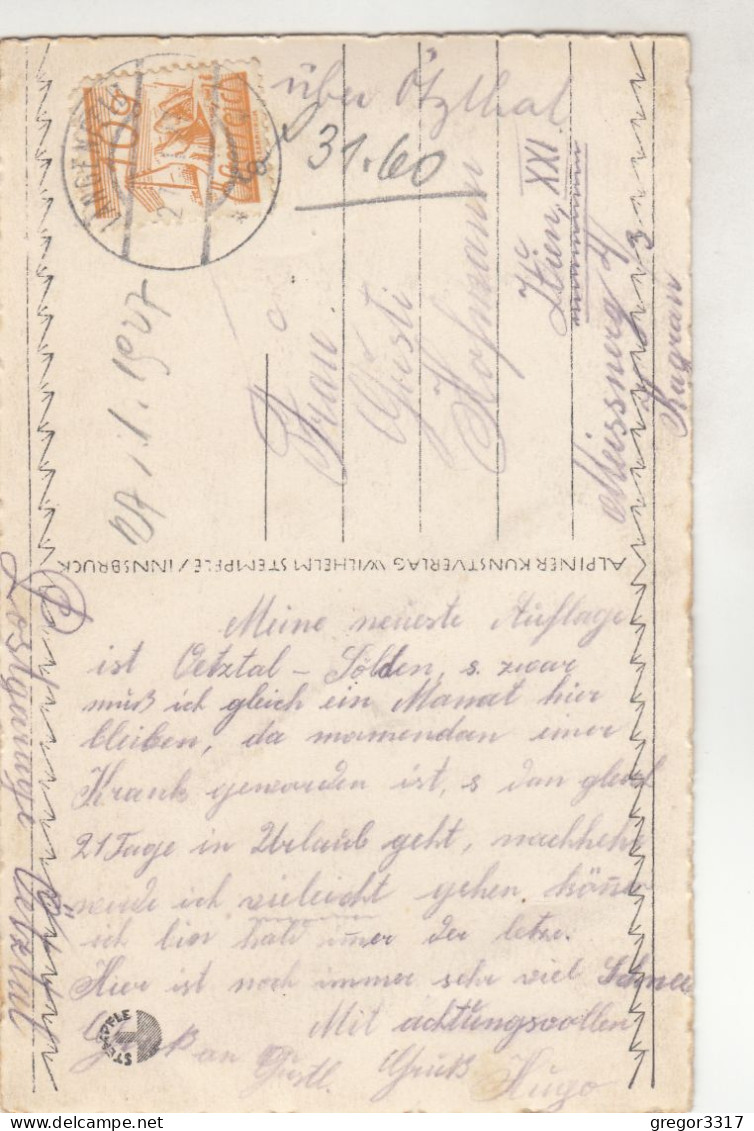 über Ötzthal
31.60
Frau
Gusti
Hofmann
Wien, XXI
Meissnerg
3
Kagran
27.1.1927
10 g
ALPINER KUNSTVERLAG WILHELM STEMPFLE / INNSBRUCK
Meine neueste Auflage
ist Oetztal – Sölden, s. zwar
muß ich gleich ein Manat hier
bleiben, da momendan einer
Krank geworden ist, s dan gleich
21 Tage in Urlaub geht, nachher
werde ich vieleicht gehen. könen
ich bin halt imer der letze.
Hier ist noch immer sehr viel Schnee
Mit achtungsvollen
Gruß
Hugo
Gruß an Gustl.
STEMPFLE
Postgarage Oetztal
gregor3317